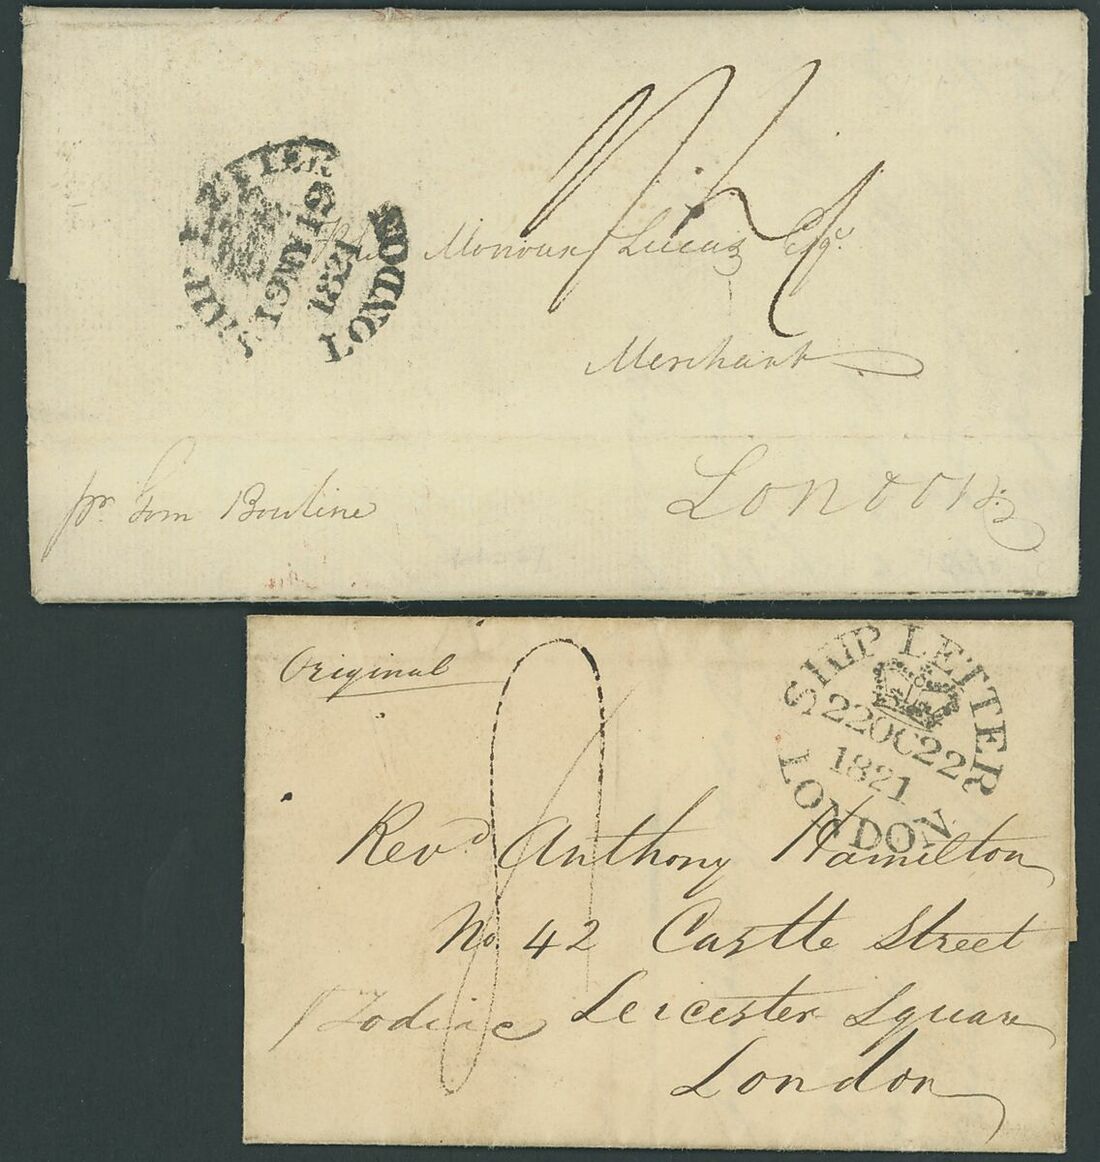 SHIP LETTER
19 MY 19
1821
LONDON
Monoux Lucas Esqr.
Merchant
pr. Tom Bowline
London
Original
SHIP LETTER
22 OC 22
1821
LONDON
Revd. Anthony Hamilton
No. 42 Castle Street
Zodiac Leicester Square
London